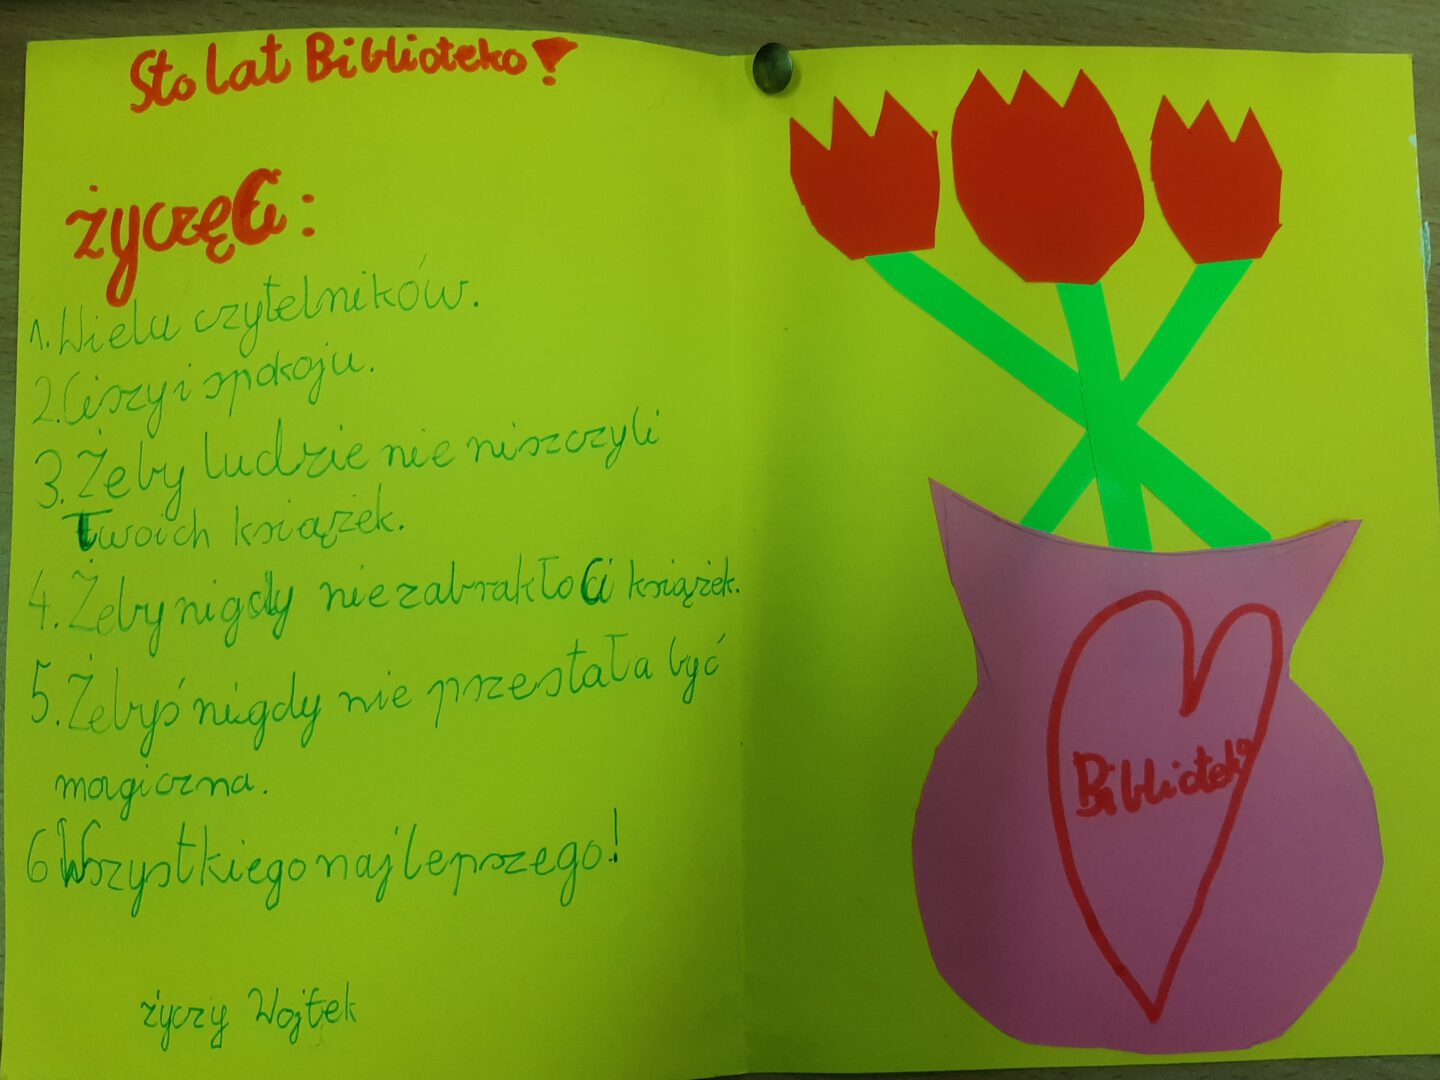 Sto lat Biblioteko!
życzę Ci:
1. Wielu czytelników.
2. Ciszy i spokoju.
3. Żeby ludzie nie niszczyli
Twoich książek.
4. Żeby nigdy nie zabrakło Ci książek.
5. Żebyś nigdy nie przestała być
magiczna.
6 Wszystkiego najlepszego!
życzy Wojtek
Biblioteko